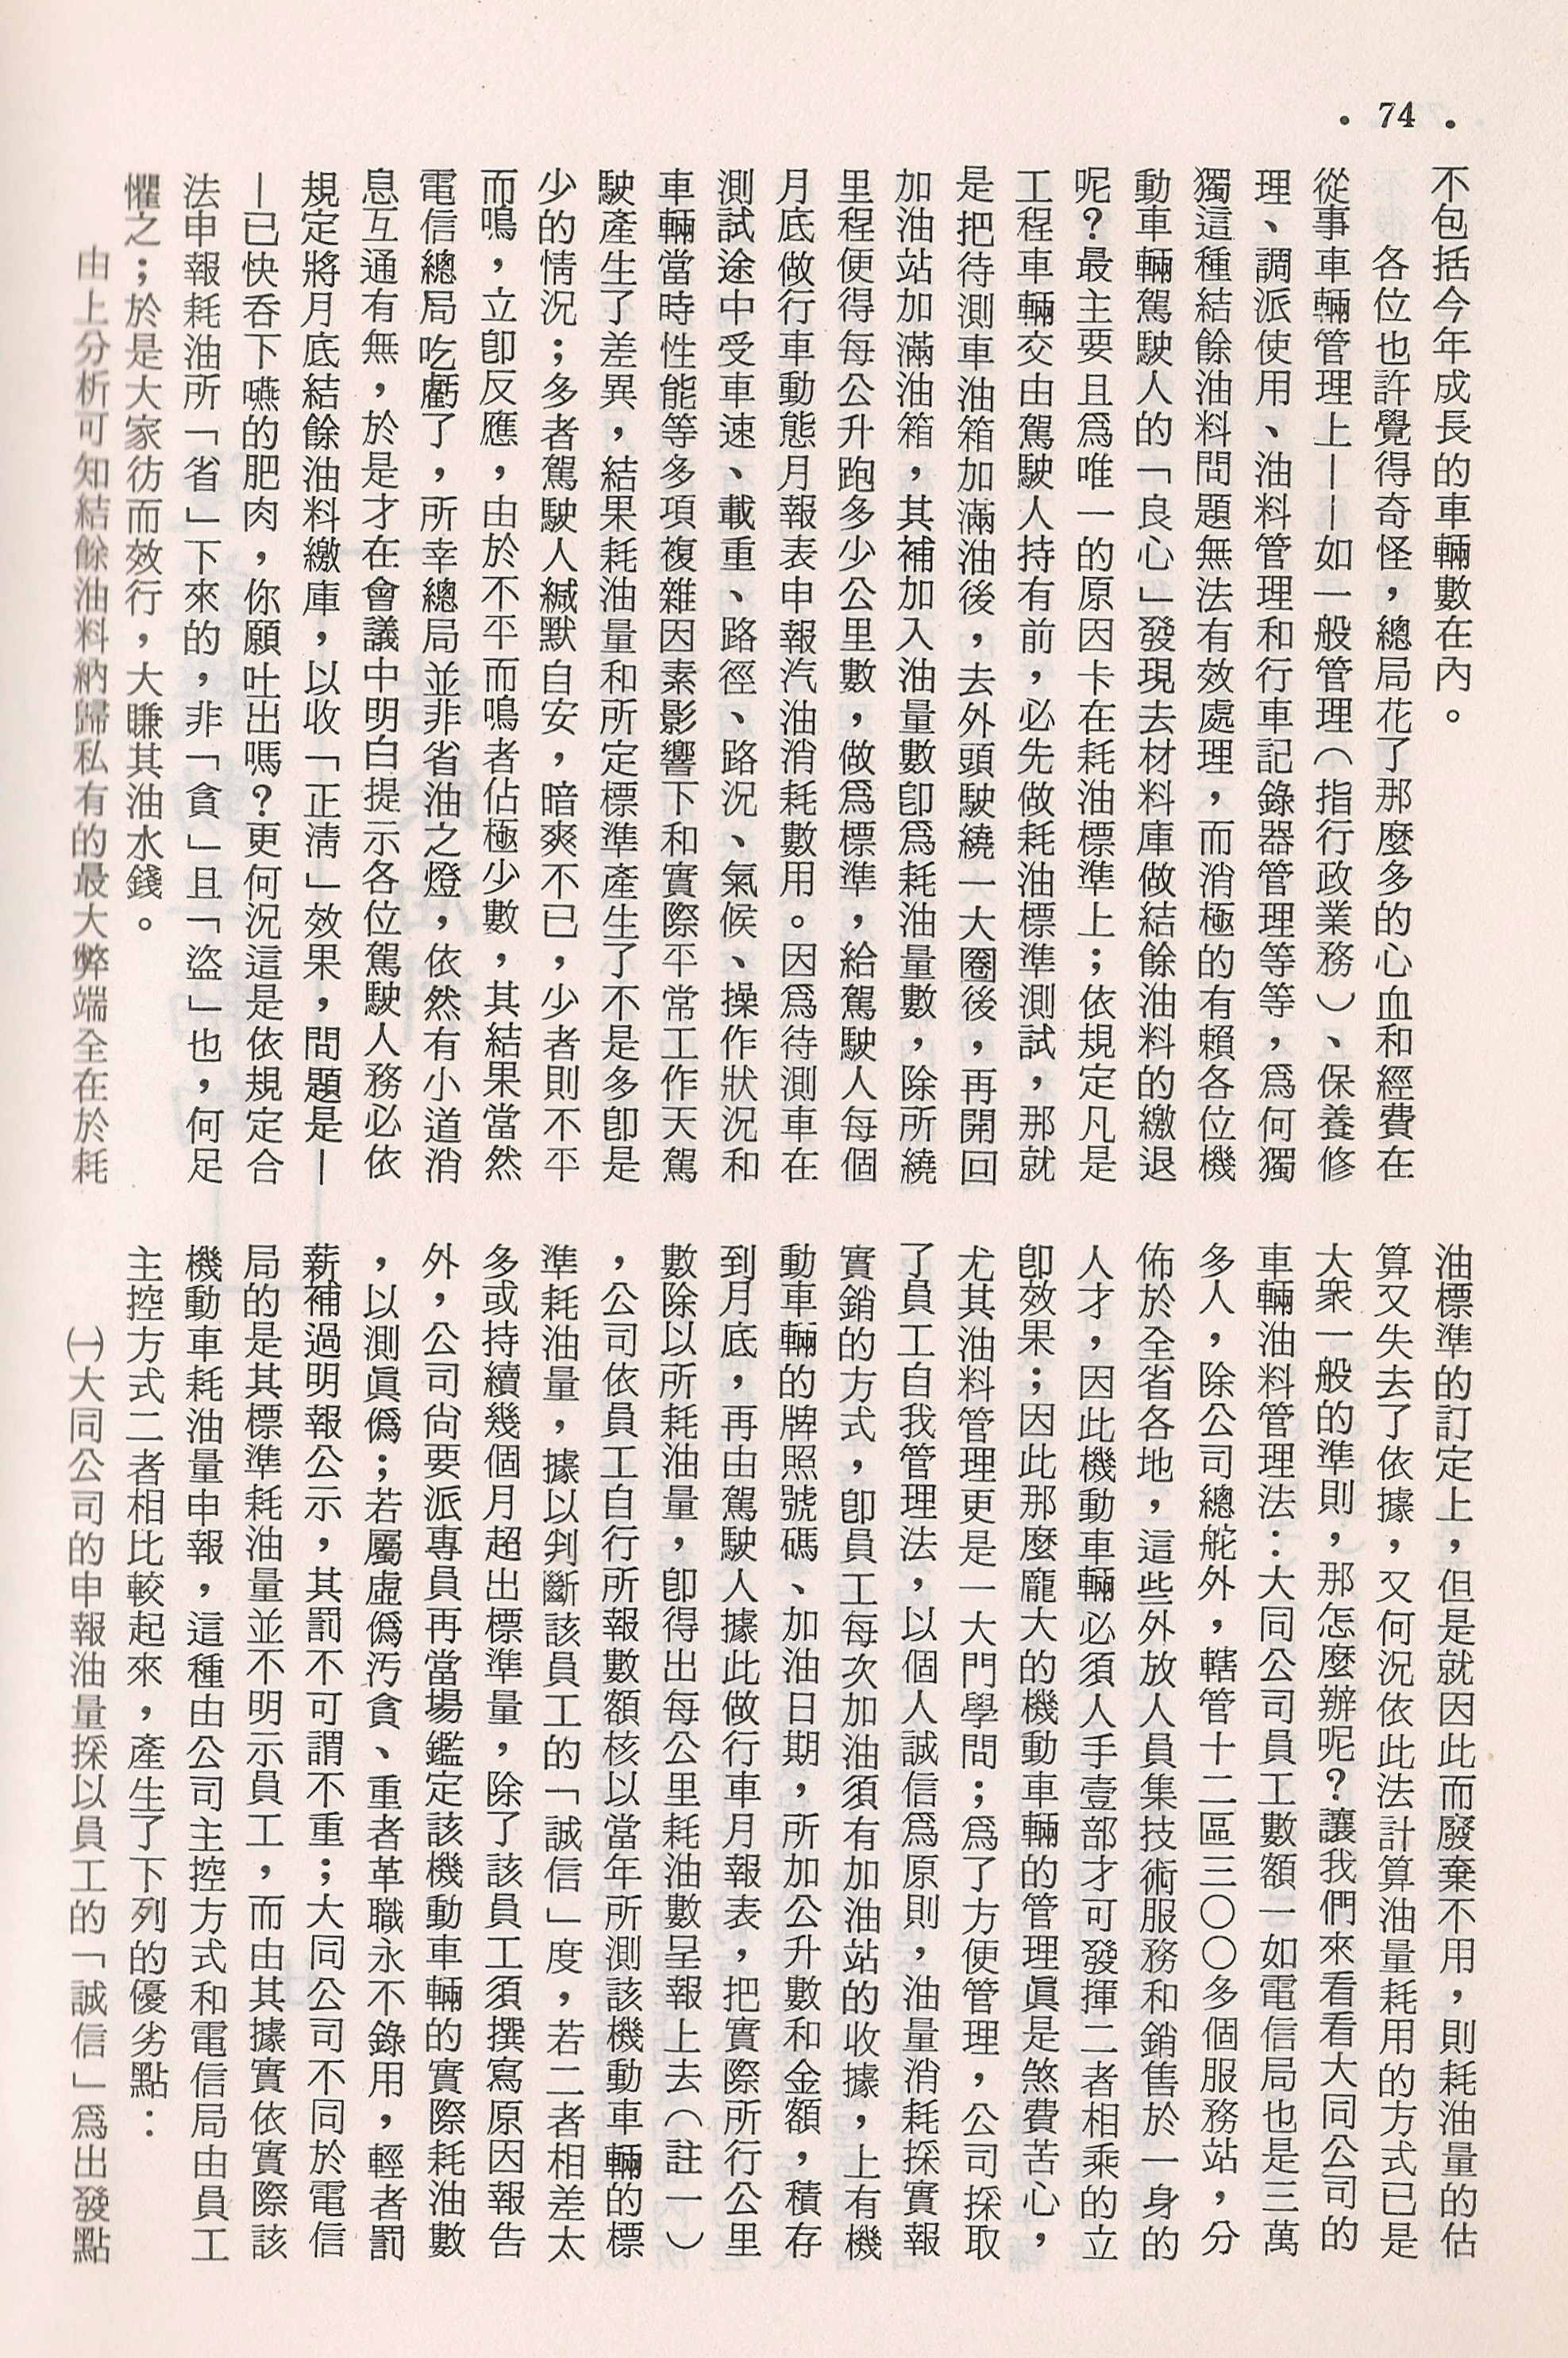 • 74 •
不包括今年成長的車輛數在內。
各位也許覺得奇怪，總局花了那麼多的心血和經費在
從事車輛管理上——如一般管理（指行政業務）、保養修
理、調派使用、油料管理和行車記錄器管理等等，爲何獨
獨這種結餘油料問題無法有效處理，而消極的有賴各位機
動車輛駕駛人的「良心」發現去材料庫做結餘油料的繳退
呢？最主要且爲唯一的原因卡在耗油標準上；依規定凡是
工程車輛交由駕駛人持有前，必先做耗油標準測試，那就
是把待測車油箱加滿油後，去外頭駛繞一大圈後，再開回
加油站加滿油箱，其補加入油量數卽爲耗油量數，除所繞
里程便得每公升跑多少公里數，做爲標準，給駕駛人每個
月底做行車動態月報表申報汽油消耗數用。因爲待測車在
測試途中受車速、載重、路徑、路況、氣候、操作狀況和
車輛當時性能等多項複雜因素影響下和實際平常工作天駕
駛產生了差異，結果耗油量和所定標準產生了不是多卽是
少的情況；多者駕駛人緘默自安，暗爽不已，少者則不平
而鳴，立卽反應，由於不平而鳴者佔極少數，其結果當然
電信總局吃虧了，所幸總局並非省油之燈，依然有小道消
息互通有無，於是才在會議中明白提示各位駕駛人務必依
規定將月底結餘油料繳庫，以收「正淸」效果，問題是—
—已快吞下嚥的肥肉，你願吐出嗎？更何況這是依規定合
法申報耗油所「省」下來的，非「貪」且「盜」也，何足
懼之；於是大家彷而效行，大賺其油水錢。
由上分析可知結餘油料納歸私有的最大弊端全在於耗
油標準的訂定上，但是就因此而廢棄不用，則耗油量的估
算又失去了依據，又何況依此法計算油量耗用的方式已是
大衆一般的準則，那怎麼辦呢？讓我們來看看大同公司的
車輛油料管理法：大同公司員工數額一如電信局也是三萬
多人，除公司總舵外，轄管十二區三〇〇多個服務站，分
佈於全省各地，這些外放人員集技術服務和銷售於一身的
人才，因此機動車輛必須人手壹部才可發揮二者相乘的立
卽效果；因此那麼龐大的機動車輛的管理眞是煞費苦心，
尤其油料管理更是一大門學問；爲了方便管理，公司採取
了員工自我管理法，以個人誠信爲原則，油量消耗採實報
實銷的方式，卽員工每次加油須有加油站的收據，上有機
動車輛的牌照號碼、加油日期，所加公升數和金額，積存
到月底，再由駕駛人據此做行車月報表，把實際所行公里
數除以所耗油量，卽得出每公里耗油數呈報上去（註一）
，公司依員工自行所報數額核以當年所測該機動車輛的標
準耗油量，據以判斷該員工的「誠信」度，若二者相差太
多或持續幾個月超出標準量，除了該員工須撰寫原因報告
外，公司尙要派專員再當場鑑定該機動車輛的實際耗油數
，以測眞僞；若屬虛僞汚貪、重者革職永不錄用，輕者罰
薪補過明報公示，其罰不可謂不重；大同公司不同於電信
局的是其標準耗油量並不明示員工，而由其據實依實際該
機動車耗油量申報，這種由公司主控方式和電信局由員工
主控方式二者相比較起來，產生了下列的優劣點：
㈠大同公司的申報油量採以員工的「誠信」爲出發點